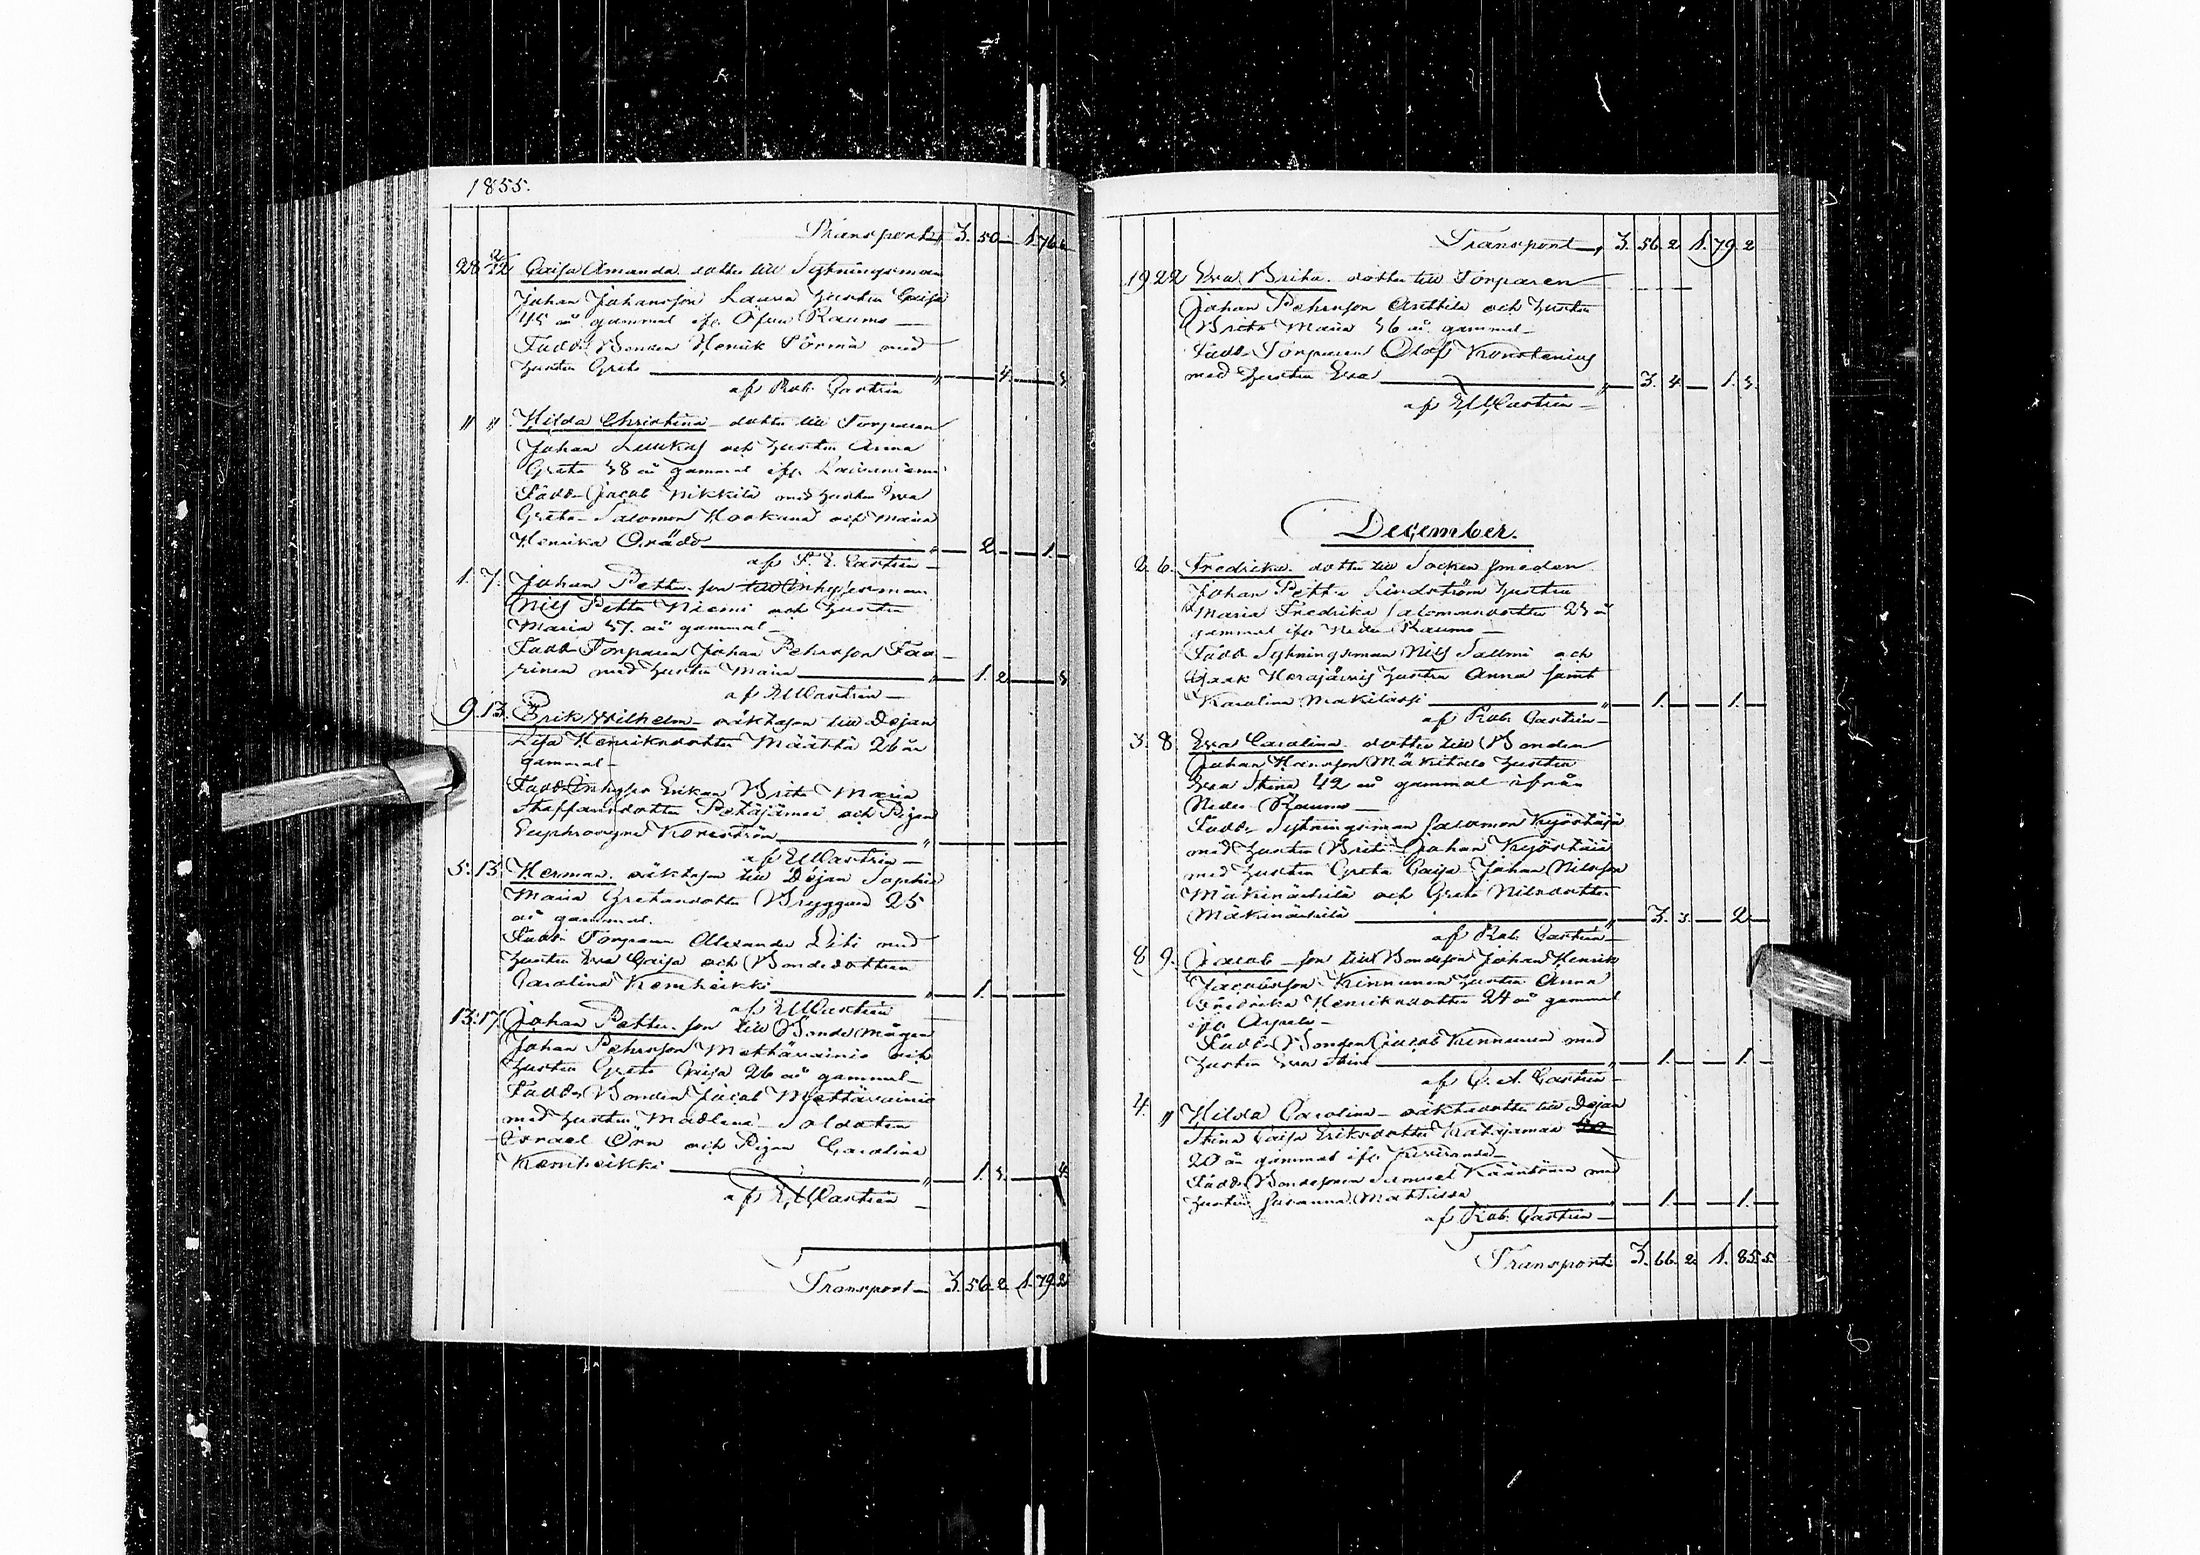 1855.
Transport, 3. 50 — 1. 76.
28 22 Caisa Amanda dotter till Sytningsman
Johan Johansson Lauva hustru Caisa
45 år gammal ifr. Öfver Raumo —
Fadd. Bonden Henrik Sörmä med
hustru Greta — 4. — 3
af Rob. Castrén
" " Hilda Christina dotter till Torparen
Johan Luukas och hustru Anna
Greta 38 år gammal ifr.
Fadd. Jacob Nikkilä med hustru Eva
Greta Salomon och Maria
Henrika — 2. — 1. —
af S. E. Castrén —
1. 7. Johan Petter son till Inhysesman
Nils Petter Niemi och hustru
Maria 37. år gammal —
Fadd. Torparen Johan Pehrsson
med hustru Maria — 1. 2 — 3
af E W Castrén —
9. 13. Erik Wilhelm — oäkta son till Pigan
Lisa Henriksdotter Määttä 26 år
gammal —
Fadd. Inhyses Erikan Brita Maria
Staffansdotter Petäjämaa och Pigan
Euphrosyne Korström
af E W Castrén —
5. 13. Herman oäkta son till Pigan Sophia
Maria Gretasdotter Bryggare 25
år gammal.
Fadd. Torparen Alexander Liti med
hustru Eva Caisa och Bondedottren
Carolina Kemheikki — 1. —
af E W Castrén
13. 17. Johan Petter son till Bonde mågen
Johan Pehrsson Mattävainio och
hustru Greta Caisa 26 år gammal —
Fadd. Bonden Jacob Mattävainio
med hustru Madlena Soldaten
Israel Örn och Pigan Carolina
Kemheikki — 1. 3. — 4
af E W Castrén —
Transport — 3. 56. 2 1. 79. 2
Transport, 3. 56. 2 1. 79. 2
19 22 Eva Brita dotter till Torparen
Johan Pehrsson Anttila och hustru
Brita Maria 36 år gammal —
Fadd. Torparen Olof Konstenius
med hustru Eva — 3. 4 — 1. 3.
af E W Castrén —
December.
2. 6. Fredrika dotter till Socken smeden
Johan Petter Lindström hustru
Maria Fredrika Salomonsdotter 23 år
gammal ifr. Neder Raumo —
Fadd. Sytningsman Nils Salmi och
Isaak Herajärvi hustru Anna samt
Karolina — 1. — 1. —
af Rob. Castrén —
3. 8 Eva Carolina dotter till Bonden
Johan Hansson Mäkitalo hustru
Eva Stina 42 år gammal ifrån
Neder Raumo —
Fadd. Sytningsman Salomon Kyöstäjä
med hustru Brita Johan Kyöstäjä
med hustru Greta Caisa Johan Nilsson
Mäkinärhilä och Greta Nilsdotter
Mäkinärhilä — 3. 3. — 2 —
af Rob. Castrén —
8 9. Jacob — son till Bondeson Johan Henrik
Jacobsson Kinnunen hustru Anna
Fredrika Henriksdotter 24 år gammal
ifr. —
Fadd. Bonden Jacob Kinnunen med
hustru Eva Stina — 1. — 1. —
af C. A. Castrén —
4. " Hilda Carolina — oäkta dotter till Pigan
Stina Caisa Eriksdotter Katajamaa
20 år gammal ifr. Kiviranta —
Fadd. Bondesonen Samuel Kääntönen med
hustru Susanna — 1. — 1. —
af Rob. Castrén —
Transport 3. 66. 2 1. 85. 5.